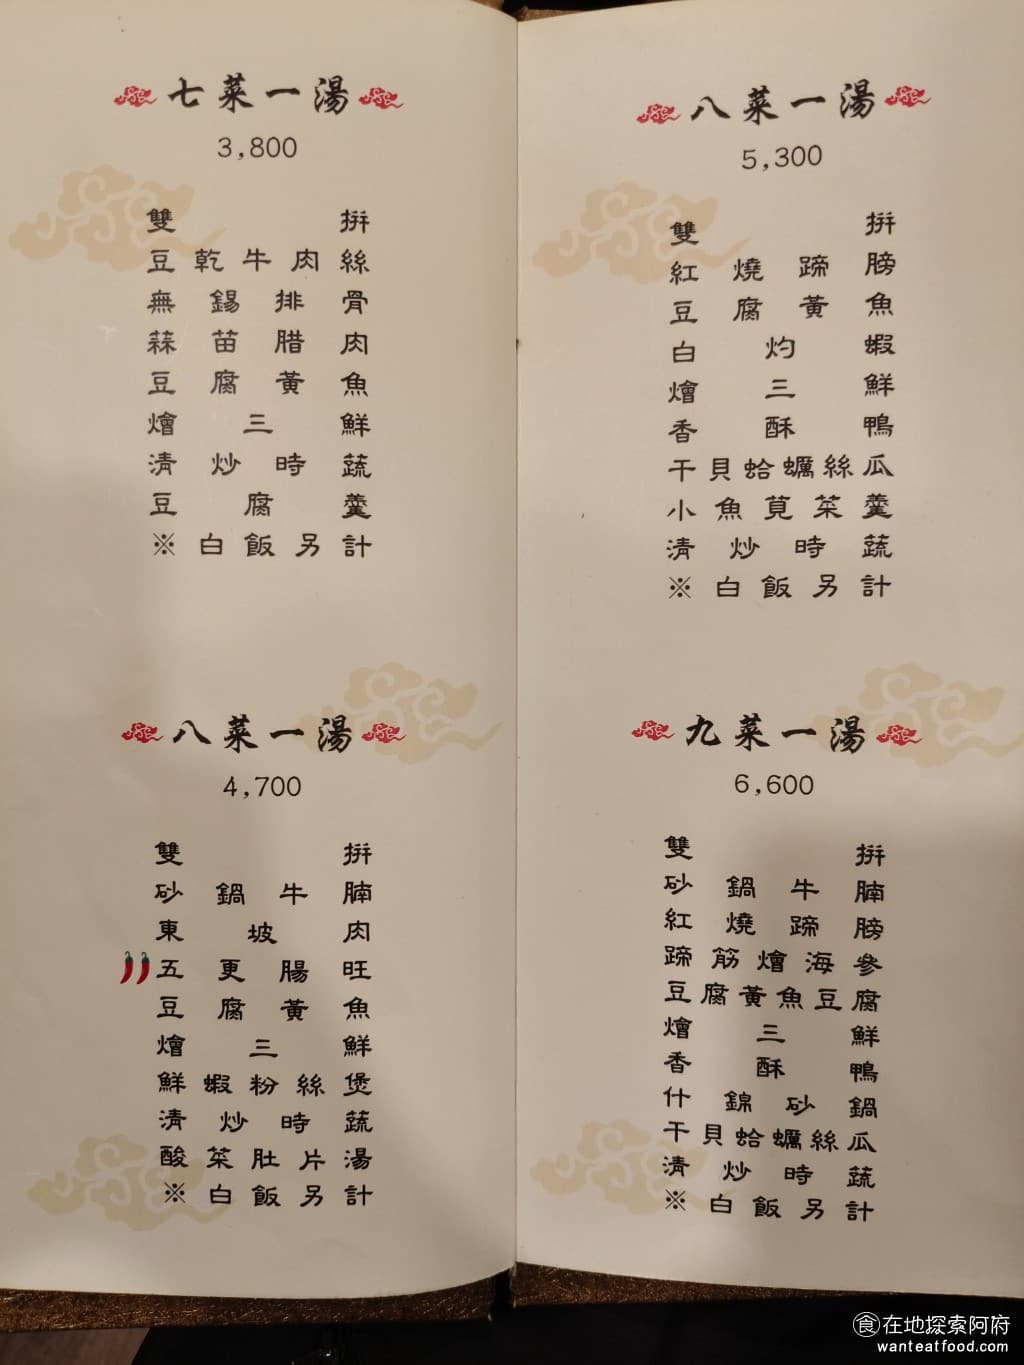 七菜一湯
3,800
雙拼
豆乾牛肉絲
無錫排骨
蒜苗腊肉
豆腐黃魚
燴三鮮
清炒時蔬
豆腐羹
※白飯另計
八菜一湯
4,700
雙拼
砂鍋牛腩
東坡肉
五更腸旺
豆腐黃魚
燴三鮮
鮮蝦粉絲煲
清炒時蔬
酸菜肚片湯
※白飯另計
八菜一湯
5,300
雙拼
紅燒蹄膀
豆腐黃魚
白灼蝦
燴三鮮
香酥鴨
干貝蛤蠣絲瓜
小魚莧菜羹
清炒時蔬
※白飯另計
九菜一湯
6,600
雙拼
砂鍋牛腩
紅燒蹄膀
蹄筋燴海參
豆腐黃魚豆腐
燴三鮮
香酥鴨
什錦砂鍋
干貝蛤蠣絲瓜
清炒時蔬
※白飯另計
食在地探索阿府
wanteatfood.com